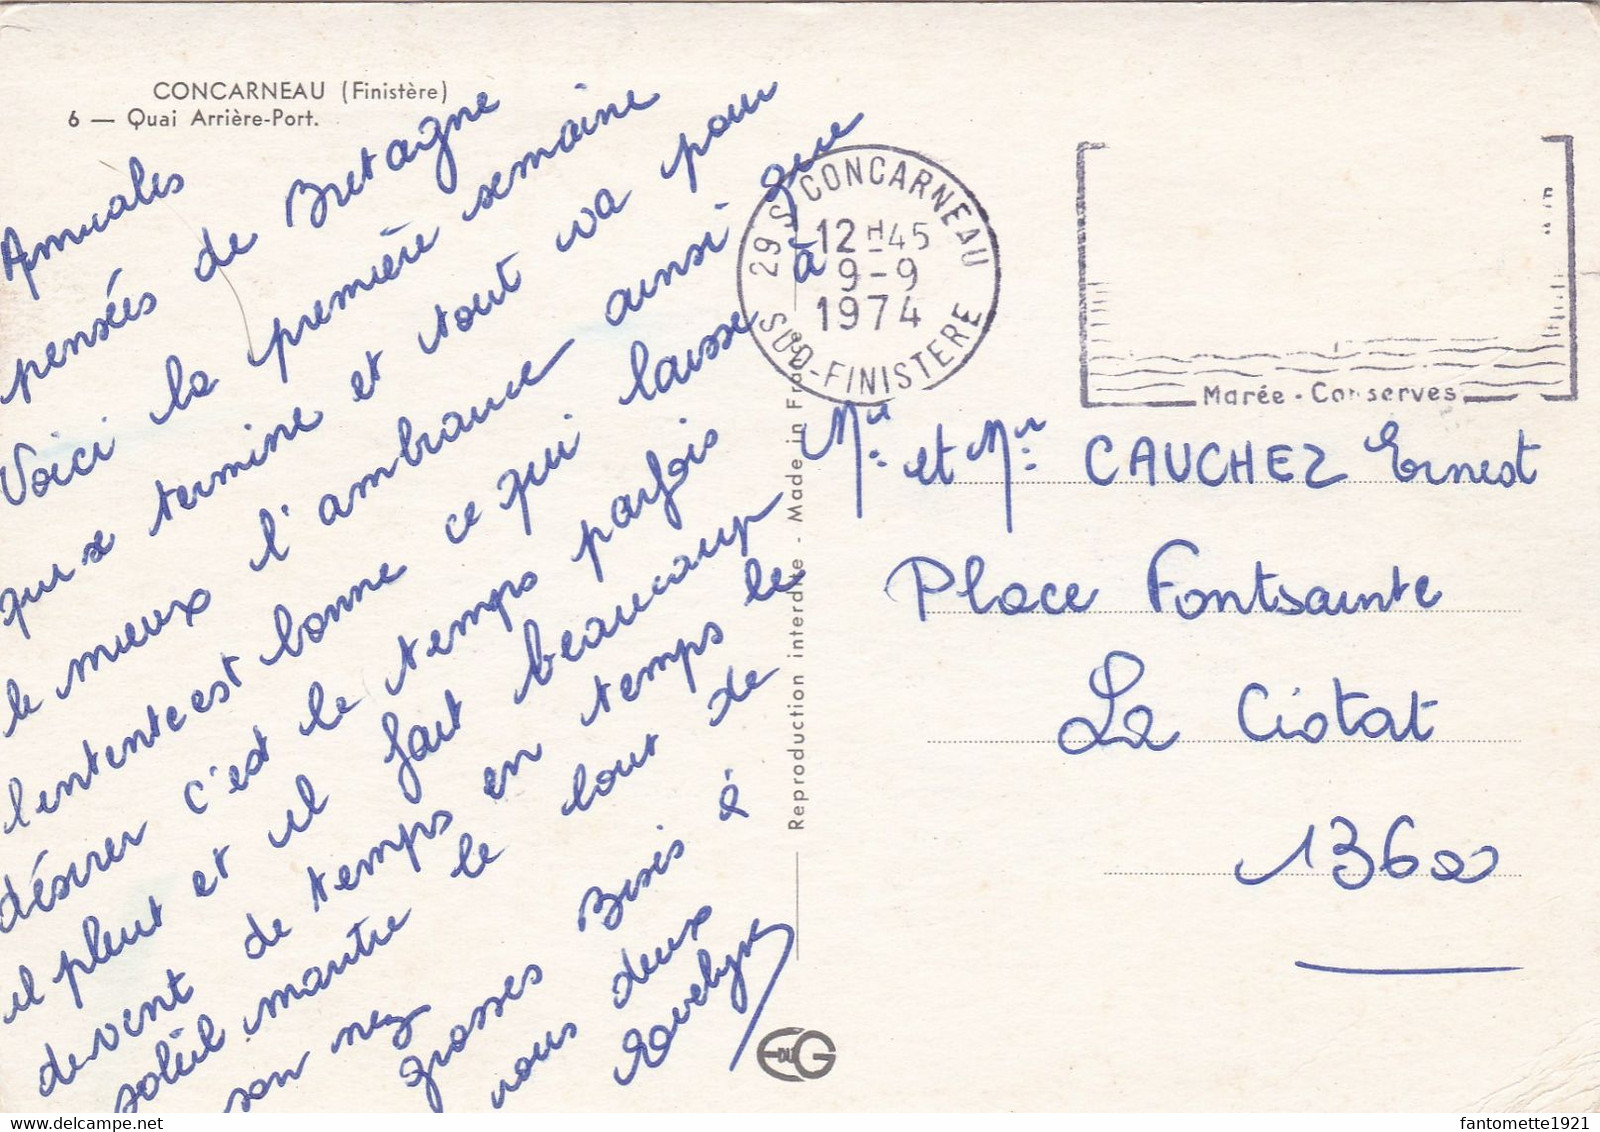 CONCARNEAU (Finistère)
6 — Quai Arrière-Port.
Amicales
pensées de Bretagne
Voici la première semaine
qui se termine et tout va pour
le mieux l'ambiance ainsi que
l'entente est bonne ce qui laisse à
désirer c'est le temps parfois
il pleut et il fait beaucoup
de vent de temps en temps le
soleil montre le bout de
son nez
grosses Bises à
vous deux
Evelyne
Reproduction interdite - Made in France
EDUG
29 S CONCARNEAU
12H45
9-9
1974
SUD-FINISTERE
Marée - Conserves
Mr et Me CAUCHEZ Ernest
Place Fontsainte
La Ciotat
13600
fantomette1921